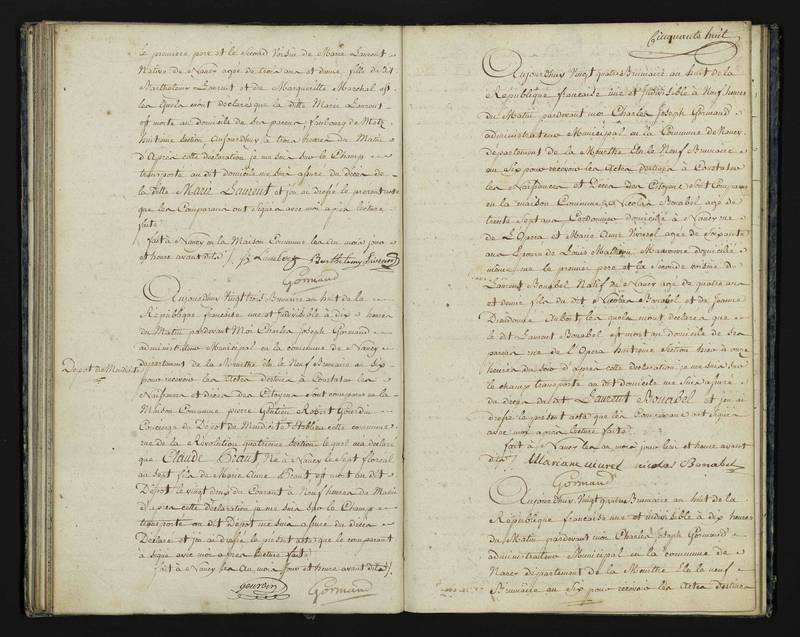 le premiere pere et le Second Voisin de Marie Laurent
Native de Nancy agée de trois ans et demie fille dudit
Barthelemy Laurent et de Marguerite Marchal
lesquels mont déclarés que la ditte Marie Laurent
est morte au domicile de ses parens, faubourg de Metz
huitieme Section, aujourdhuy a trois heures du Matin
d'Apres cette declaration je me suis sur le Champ
transporté au dit domicile me suis assure du décés de
la ditte Marie Laurent et j'ai dressé le present acte
que les Comparans ont signés avec moi après lecture
faitte
fait a Nancy en la Maison Commune les an mois jour
et heure avant dits
Gormand
Aujourdhuy Vingt trois Brumaire an huit de la
République francaise une et Indivisible à dix heures
du Matin pardevant Moi Charles Joseph Gormand
administrateur Municipal en la commune de Nancy
département de la Meurthe élu le Neuf Brumaire an Six
Depot de Mendicité
pour recevoir les Actes destinés à Constater les
Naissances et décés des Citoyens sont comparus en la
Maison Commune pierre Robert Gourdin
Concierge du Depot de Mendicité etablie cette commune
rue de la Révolution quatrieme Section lequel ma declaré
que Claude Né a Nancy le Sept floreal
an sept fils de Marie Anne est mort au dit
Dépot le vingt deux du Courant à Neuf heures du Matin
d'apres cette déclaration je me suis sur le Champ
transporté au dit Dépot me suis assure du décés
Déclaré et j'ai dressé le present acte que le comparant
à signé avec moi apres lecture faite
fait à Nancy les an mois jour et heure avant dits
gourdin Gormand
Cinquante huit
Aujourdhuy Vingt quatre Brumaire an huit de la
République francaise une et Indivisible à Neuf heures
du Matin pardevant moi Charles Joseph Gormand
administrateur Municipal en la Commune de Nancy
département de la Meurthe élu le Neuf Brumaire
an Six pour recevoir les Actes destinés à Constater
les Naissances et Décés des Citoyens sont Comparus
en la maison Commune Nicolas Bonabel agé de
trente Sept ans Cordonnier domicilié à Nancy rue
de L'Opera et Marie Anne agée de Soixante
ans Epouse de Louis Manoeuvre domiciliée
même rue le premier pere et la Seconde voisine de
Laurent Bonabel Natif de Nancy agé de quatre ans
et demie fils du dit Nicolas Bonabel et de Jeanne
lesquels mont déclarés que
le dit Laurent Bonabel est mort au domicile de ses
parens rue de l'Opera huitieme Section hier à onze
heures du Soir d'après cette declaration je me suis sur
le champ transporté au dit domicile me suis assuré
du décés dudit Laurent Bonabel et j'ai
dressé le present acte que les Comparans ont signés
avec moi après lecture faite
fait à Nancy les an mois jour et heure avant
dits Mariane nicolas Bonabel
Gormand
Aujourdhuy Vingt quatre Brumaire an huit de la
République francaise une et indivisible à dix heures
du Matin pardevant moi Charles Joseph Gormand
administrateur Municipal en la commune de
Nancy département de la Meurthe Elu le neuf
Brumaire an Six pour recevoir les Actes destinés